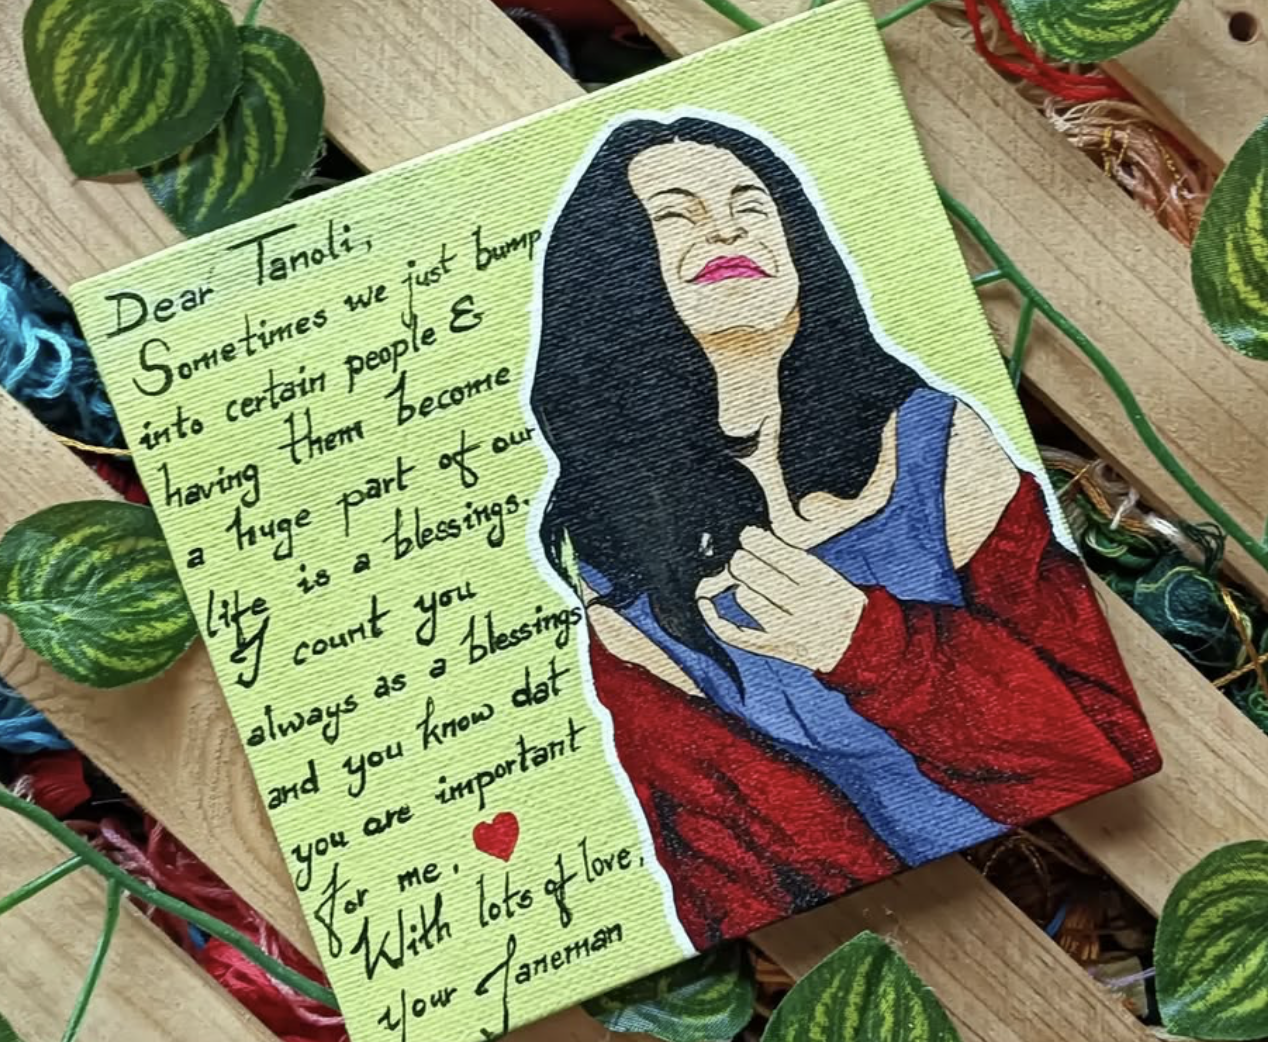 Dear Tanoli,
Sometimes we just bump
into certain people &
having them become
a huge part of our
life is a blessings.
I count you
always as a blessings
and you know dat
you are important
for me. ❤
With lots of love,
your Janeman